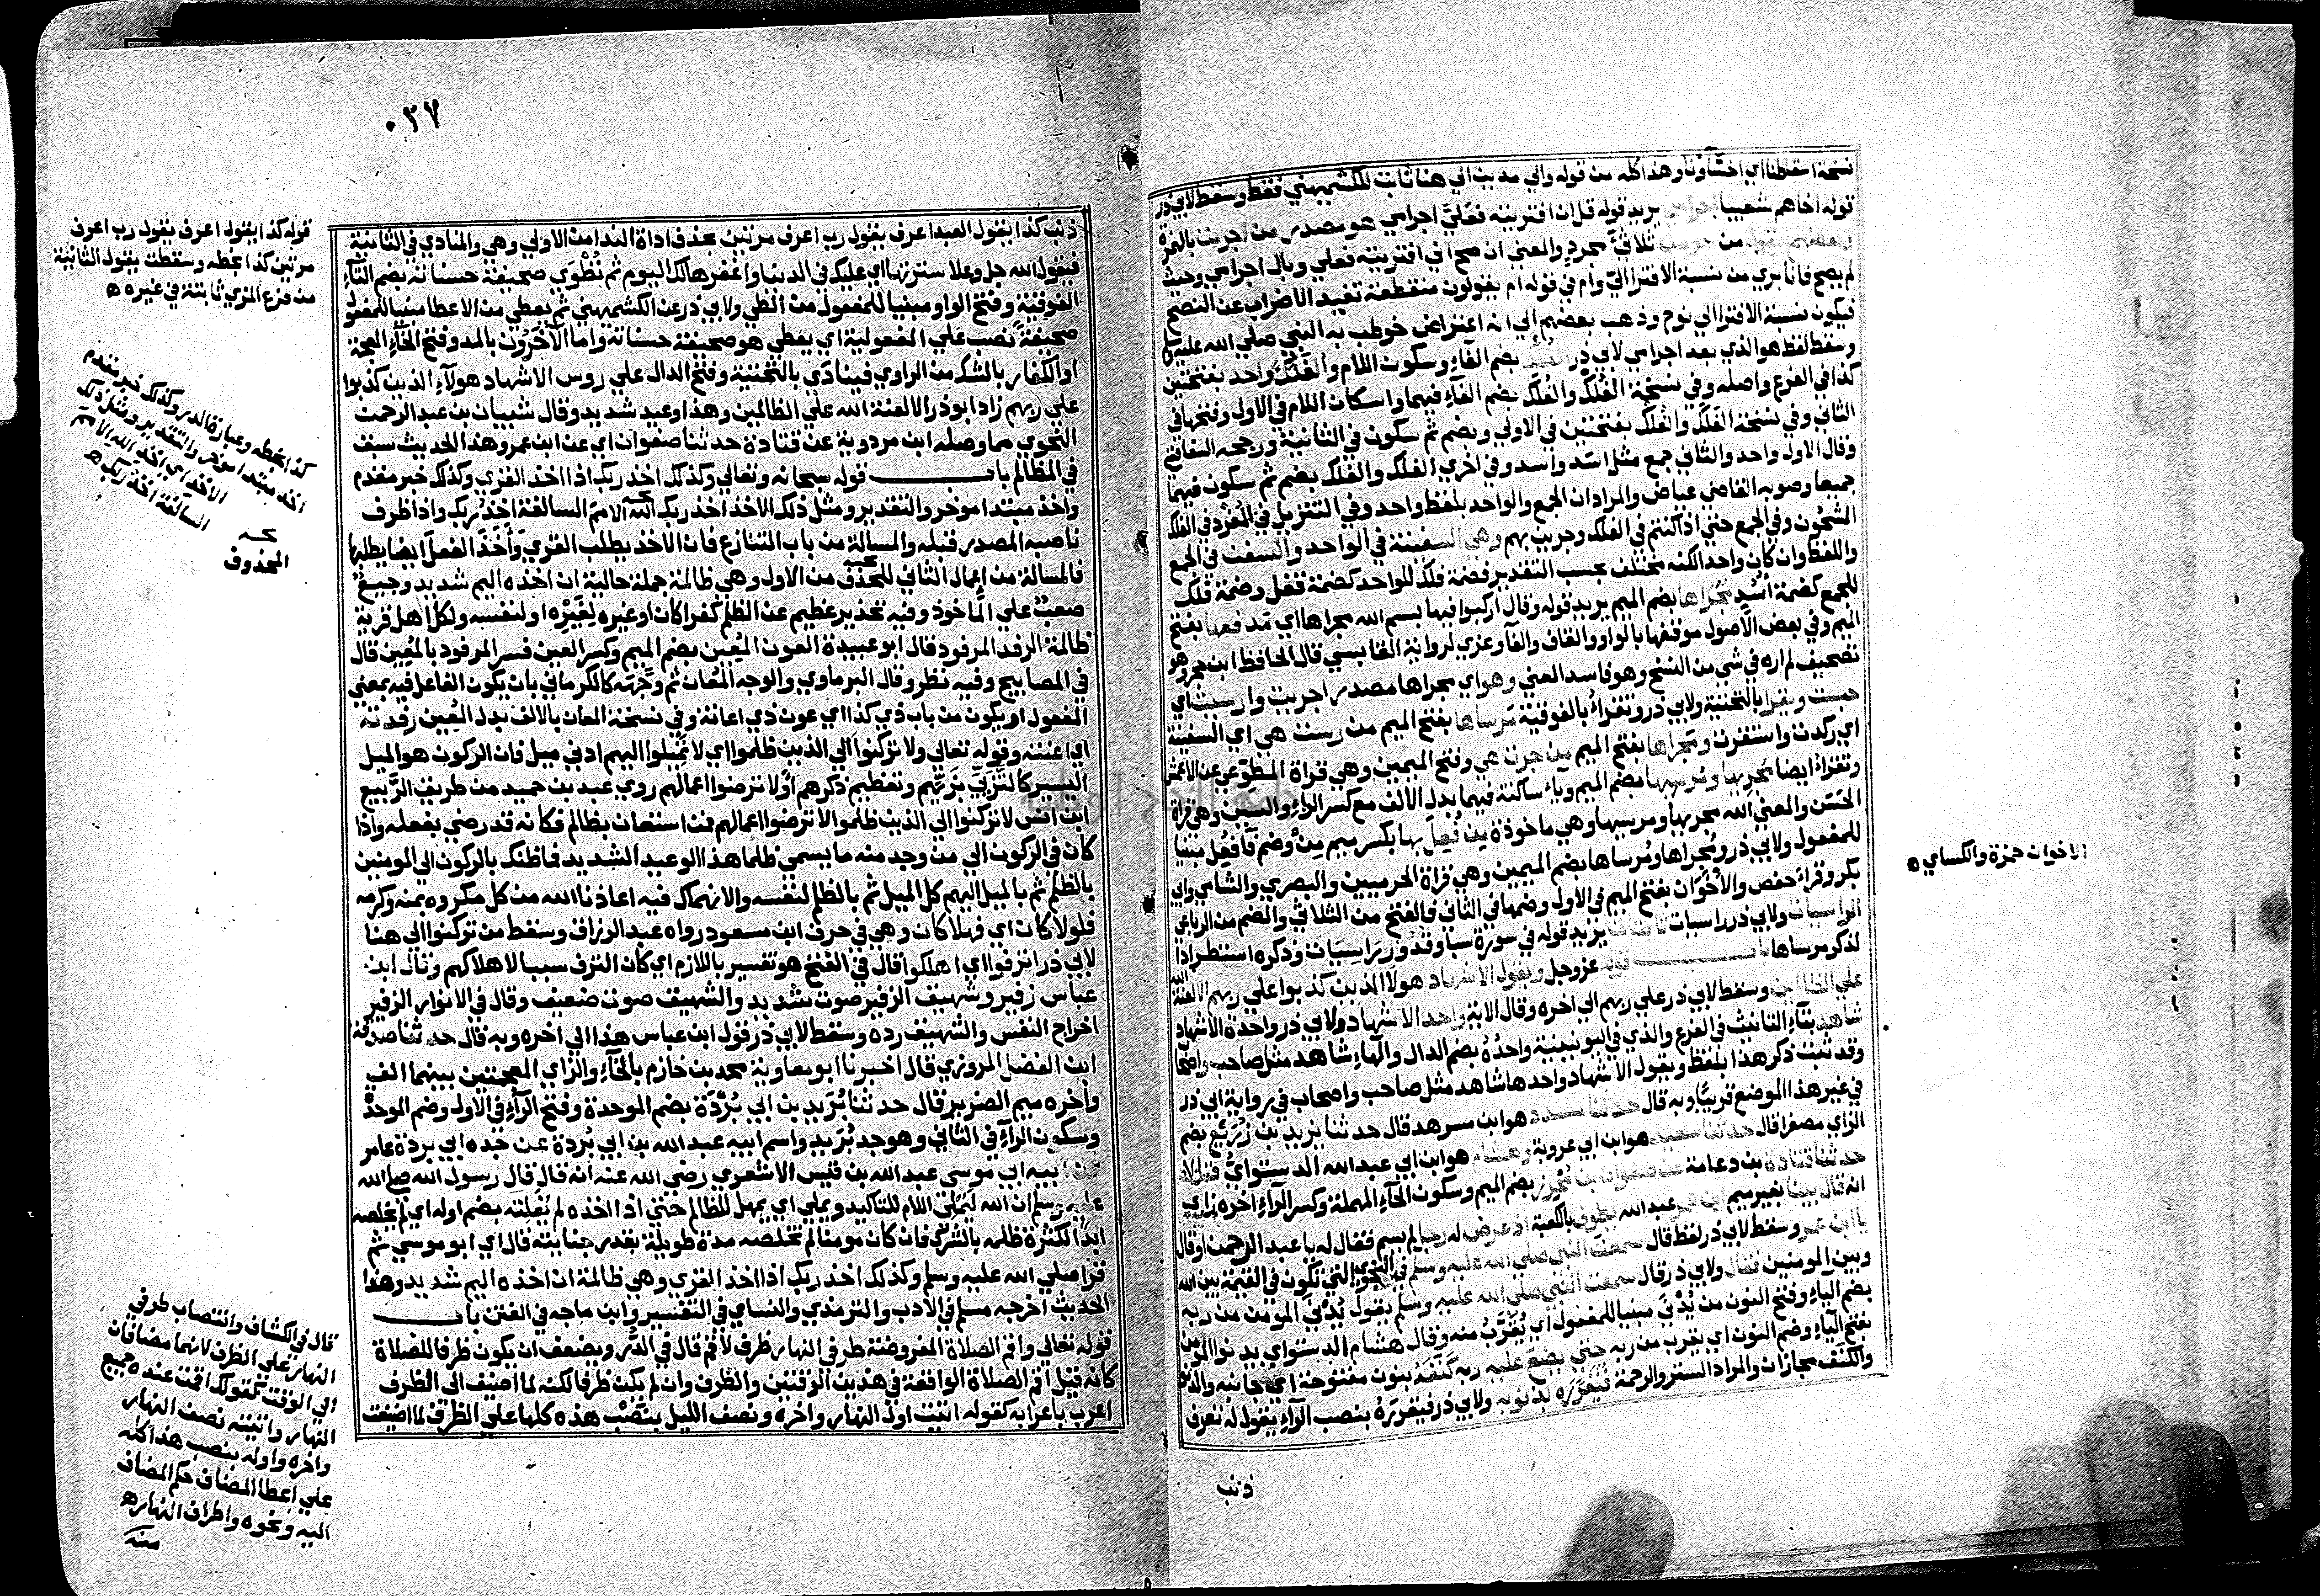 نسخة اسقاطنا اي اخسّاونا وهذا كله من قوله والي مدين الي هنا ثابت للكشميهني فقط وسقط لابي ذر
قوله اخاهم شعيبا يريد قوله قل ان افتريته فعليّ اجرامي هو مصدر من اجرمت بالهمزة
وبعضهم يقول من ثلاثي مجرد والمعني ان صح اني افتريته فعلي وبال اجرامي وحيث
لم يصح فانا بري من نسبة الافترا اليّ وام في قوله ام يقولون منقطعة تفيد الاضراب عن النصح
فيكون نسبة الافترا الي نوح وذهب بعضهم الي انه اعتراض خوطب به النبي صلي الله عليه
وسقط لفظ هو الذي بعد اجرامي لابي ذر الفلك بضم الفاء وسكون اللام والفلك واحد بفتحتين
كذا في الفرع واصله وفي نسخة الفلك والفلك بضم الفاء فيهما واسكان اللام في الاول وفتحها في
الثاني وفي نسخة الفلك والفلك بفتحتين في الاولي وبضم ثم سكون في الثانية ورجحه السفاقسي
وقال الاول واحد والثاني جمع مثل اسد واسد وفي اخري الفلك والفلك بضم ثم سكون فيهما
جميعا وصوبه القاضي عياض والمراد ان الجمع والواحد بلفظ واحد وفي التنزيل في المفرد في الفلك
المشحون وفي الجمع حتي اذا كنتم في الفلك وجرين بهم وهي السفينة في الواحد والسفن في الجمع
واللفظ وان كان واحدا لكنه مختلف بحسب التقدير فضمة فلك للواحد كضمة قفل وضمة فلك
للجمع كضمة اسد مجراها بضم الميم يريد قوله وقال اركبوا فيها بسم الله مجراها اي مدفعها بفتح
الميم وفي بعض الاصول موقفها بالواو والقاف والفاء وعزي لرواية القابسي قال الحافظ ابن حجر وهو
تصحيف لم اره في شي من النسخ وهو فاسد المعني وهو اي مجراها مصدر اجريت وارسيت اي
حبست ويقرا بالتحتية ولابي ذر وتقراء بالفوقية مرساها بفتح الميم من رست هي اي السفينة
اي ركدت واستقرت ومجراها بفتح الميم من جرت هي وفتح الميمين وهي قراة المطوّعي عن الاعمش
وتقراء ايضا مجريها ومرسيها بضم الميم وياء ساكنة فيهما بدل الالف مع كسر الراء والسين وهي قراة
الحسن والمعني الله مجريها ومرسيها وهي ماخوذة من فعل بها بكسر ميم من وضم فآ فعل مبنيا
للمفعول ولابي ذر ومجراها ومرساها بضم الميمين وهي قراة الحرميين والبصري والشامي وابي
بكر وقراء حفص والاخوان بفتح الميم في الاول وضمها في الثاني فالفتح من الثلاثي والضم من الرباعي
الراسيات ولابي ذر راسيات ثابتات يريد قوله في سورة سبا وقدور راسيات وذكره استطرادا
لذكر مرساها باب قوله عز وجل ويقول الاشهاد هولا الذين كذبوا علي ربهم الا لعنة الله
علي الظالمين وسقط لابي ذر علي ربهم الي اخره وقال الاية واحد الاشهاد ولابي ذر واحدة الاشهاد
شاهد بتاء التانيث في الفرع والذي في اليونينية واحده بضم الدال والهاء شاهد مثل صاحب واصحاب
وقد ثبت ذكر هذا بلفظ ويقول الاشهاد واحدها شاهد مثل صاحب واصحاب في رواية ابي ذر
في غير هذا الموضع قريبا وبه قال حدثنا مسدد هو ابن مسرهد قال حدثنا يزيد بن زريع بضم
الزاي مصغرا قال حدثنا سعيد هو ابن ابي عروبة وهشام هو ابن ابي عبد الله الدستواي قالا
حدثنا قتادة بن دعامة عن صفوان بن محرز بضم الميم وسكون الحاء المهملة وكسر الراء اخره زاي
انه قال بينا بغير ميم ابن عمر عبد الله يطوف بالكعبة اذ عرض له رجل لم يسم فقال له يا عبد الرحمن او قال
يا ابن عمر وسقط لابي ذر لفظ قال سمعت النبي صلي الله عليه وسلم في النجوي التي تكون في القيمة بين الله
وبين المومنين فقال ولابي ذر قال سمعت النبي صلي الله عليه وسلم يقول يدني المومن من ربه
بضم الياء وفتح النون من يدني مبنيا للمفعول اي يقرب منه وقال هشام الدستواي يدنوا المومن
بفتح الياء وضم النون اي يقرب من ربه حتي يضع عليه ربه كنفه بنون مفتوحة اي جانبه والدنو
والكنف مجازان والمراد الستر والرحمة فيقرره بذنوبه ولابي ذر فيقرره بنصب الراء يقول له تعرف
ذنب
الاخوان حمزة والكساي ه
٠٣٧
ذنب كذا يقول العبد اعرف يقول رب اعرف مرتين بحذف اداة الندا من الاولي وهي والمنادي في الثانية
فيقول الله جل وعلا سترتها اي عليك في الدنيا واغفرها لك اليوم ثم تطوي صحيفة حسناته بضم التاء
الفوقية وفتح الواو مبنيا للمفعول من الطي ولابي ذر عن الكشميهني ثم يعطي من الاعطا مبنيا للمفعول
صحيفة نصب علي المفعولية اي يعطي هو صحيفة حسناته واما الآخرون بالمد وفتح الخاء المعجمة
او الكفار بالشك من الراوي فينادي بالتحتية وفتح الدال علي روس الاشهاد هولاء الذين كذبوا
علي ربهم زاد ابو ذر الا لعنة الله علي الظالمين وهذا وعيد شديد وقال شيبان بن عبد الرحمن
النحوي مما وصله ابن مردوية عن قتادة حدثنا صفوان اي عن ابن عمر وهذا الحديث سبق
في المظالم باب قوله سبحانه وتعالي وكذلك اخذ ربك اذا اخذ القري وكذلك خبر مقدم
واخذ مبتدا موخر والتقدير ومثل ذلك الاخذ اخذ ربك الله الامم السالفة اخذ ربك واذا ظرف
ناصبه المصدر قبله والمسالة من باب التنازع فان الاخذ يطلب القري وأخذ الفعل ايضا يطلبها
فالمسالة من اعمال الثاني للحذف من الاول وهي ظالمة جملة حالية ان اخذه اليم شديد وجيع
صعب علي الماخوذ وفيه تحذير عظيم عن الظلم كفرا كان او غيره لغيره او لنفسه ولكل اهل قرية
ظالمة الرفد المرفود قال ابو عبيدة العون المعين بضم الميم وكسر العين فسر المرفود بالمعين قال
في المصابيح وفيه نظر وقال البرماوي والوجه المعان ثم وجهه كالكرماني بان يكون الفاعل فيه بمعني
المفعول او يكون من باب ذي كذا اي عون ذي اعانة وفي نسخة المعان بالالف بدل المعين رفدته
اي اعنته وقوله تعالي ولا تركنوا الي الذين ظلموا اي لا تميلوا اليهم ادني ميل فان الركون هو الميل
اليسير كالتزيي بزيهم وتعظيم ذكرهم او لا ترضوا اعمالهم روي عبد بن حميد من طريق الربيع
ابن انس لا تركنوا الي الذين ظلموا لا ترضوا اعمالهم فمن استعان بظالم فكانه قد رضي بفعله واذا
كان في الركون الي من وجد منه ما يسمي ظلما هذا الوعيد الشديد فما ظنك بالركون الي المومنين
بالظلم ثم بالميل اليهم كل الميل ثم بالظلم لنفسه والانهماك فيه اعاذنا الله من كل مكروه بمنه وكرمه
فلولا كان اي فهلا كان وهي في حرف ابن مسعود رواه عبد الرزاق وسقط من تركنوا الي هنا
لابي ذر اترفوا اي اهلكوا قال في الفتح هو تفسير باللازم اي كان الترف سببا لاهلاكهم وقال ابن
عباس زفير وشهيق الزفير صوت شديد والشهيق صوت ضعيف وقال في الانوار الزفير
اخراج النفس والشهيق رده وسقط لابي ذر قول ابن عباس هذا الي اخره وبه قال حدثنا صدقة
ابن الفضل المروزي قال اخبرنا ابو معاوية محمد بن خازم بالخاء والزاي المعجمتين بينهما الف
واخره ميم الضرير قال حدثنا بريد بن ابي بردة بضم الموحدة وفتح الراء في الاول وضم الموحدة
وسكون الراء في الثاني وهو جد بريد واسم ابيه عبد الله بن ابي بردة عن جده ابي بردة عامر
عن ابيه ابي موسي عبد الله بن قيس الاشعري رضي الله عنه انه قال قال رسول الله صلي الله
عليه وسلم ان الله ليملي اللام للتاكيد ويملي اي يمهل للظالم حتي اذا اخذه لم يفلته بضم اوله اي لم يخلصه
ابدا لكثرة ظلمه بالشرك فان كان مومنا لم تخلصه مدة طويلة بقدر جنايته قال اي ابو موسي ثم
قرا صلي الله عليه وسلم وكذلك اخذ ربك اذا اخذ القري وهي ظالمة ان اخذه اليم شديد وهذا
الحديث اخرجه مسلم في الادب والترمذي والنساي في التفسير وابن ماجه في الفتن باب
قوله تعالي واقم الصلاة المفروضة طرفي النهار ظرف لاقم قال في الدر ويضعف ان يكون ظرفا للصلاة
كانه قيل اقم الصلاة الواقعة في هذين الوقتين والظرف وان لم يكن ظرفا لكنه لما اضيف الي الظرف
اعرب باعرابه كقوله اتيت اول النهار واخره ونصف الليل بنصب هذه كلها علي الظرف لما اضيفت
قوله كذا يقول اعرف يقول رب اعرف
مرتين كذا بخطه وسقطت يقول الثانية
من فرع المزي ثابتة في غيره ه
كذا بخطه وعبارة الدر وكذلك خبر مقدم
اخذ مبتدا موخر والتقدير ومثل ذلك
الاخذ اي اخذ الله الامم
السالفة اخذ ربك ه
المحذوف
قال في الكشاف وانتصاب طرفي
النهار علي الظرف لانهما مضافان
الي الوقت كقولك اقمت عنده جميع
النهار واتيته نصف النهار
واخره واوله بنصب هذا كله
علي اعطا المضاف حكم المضاف
اليه ونحوه واطراف النهار ه
منه